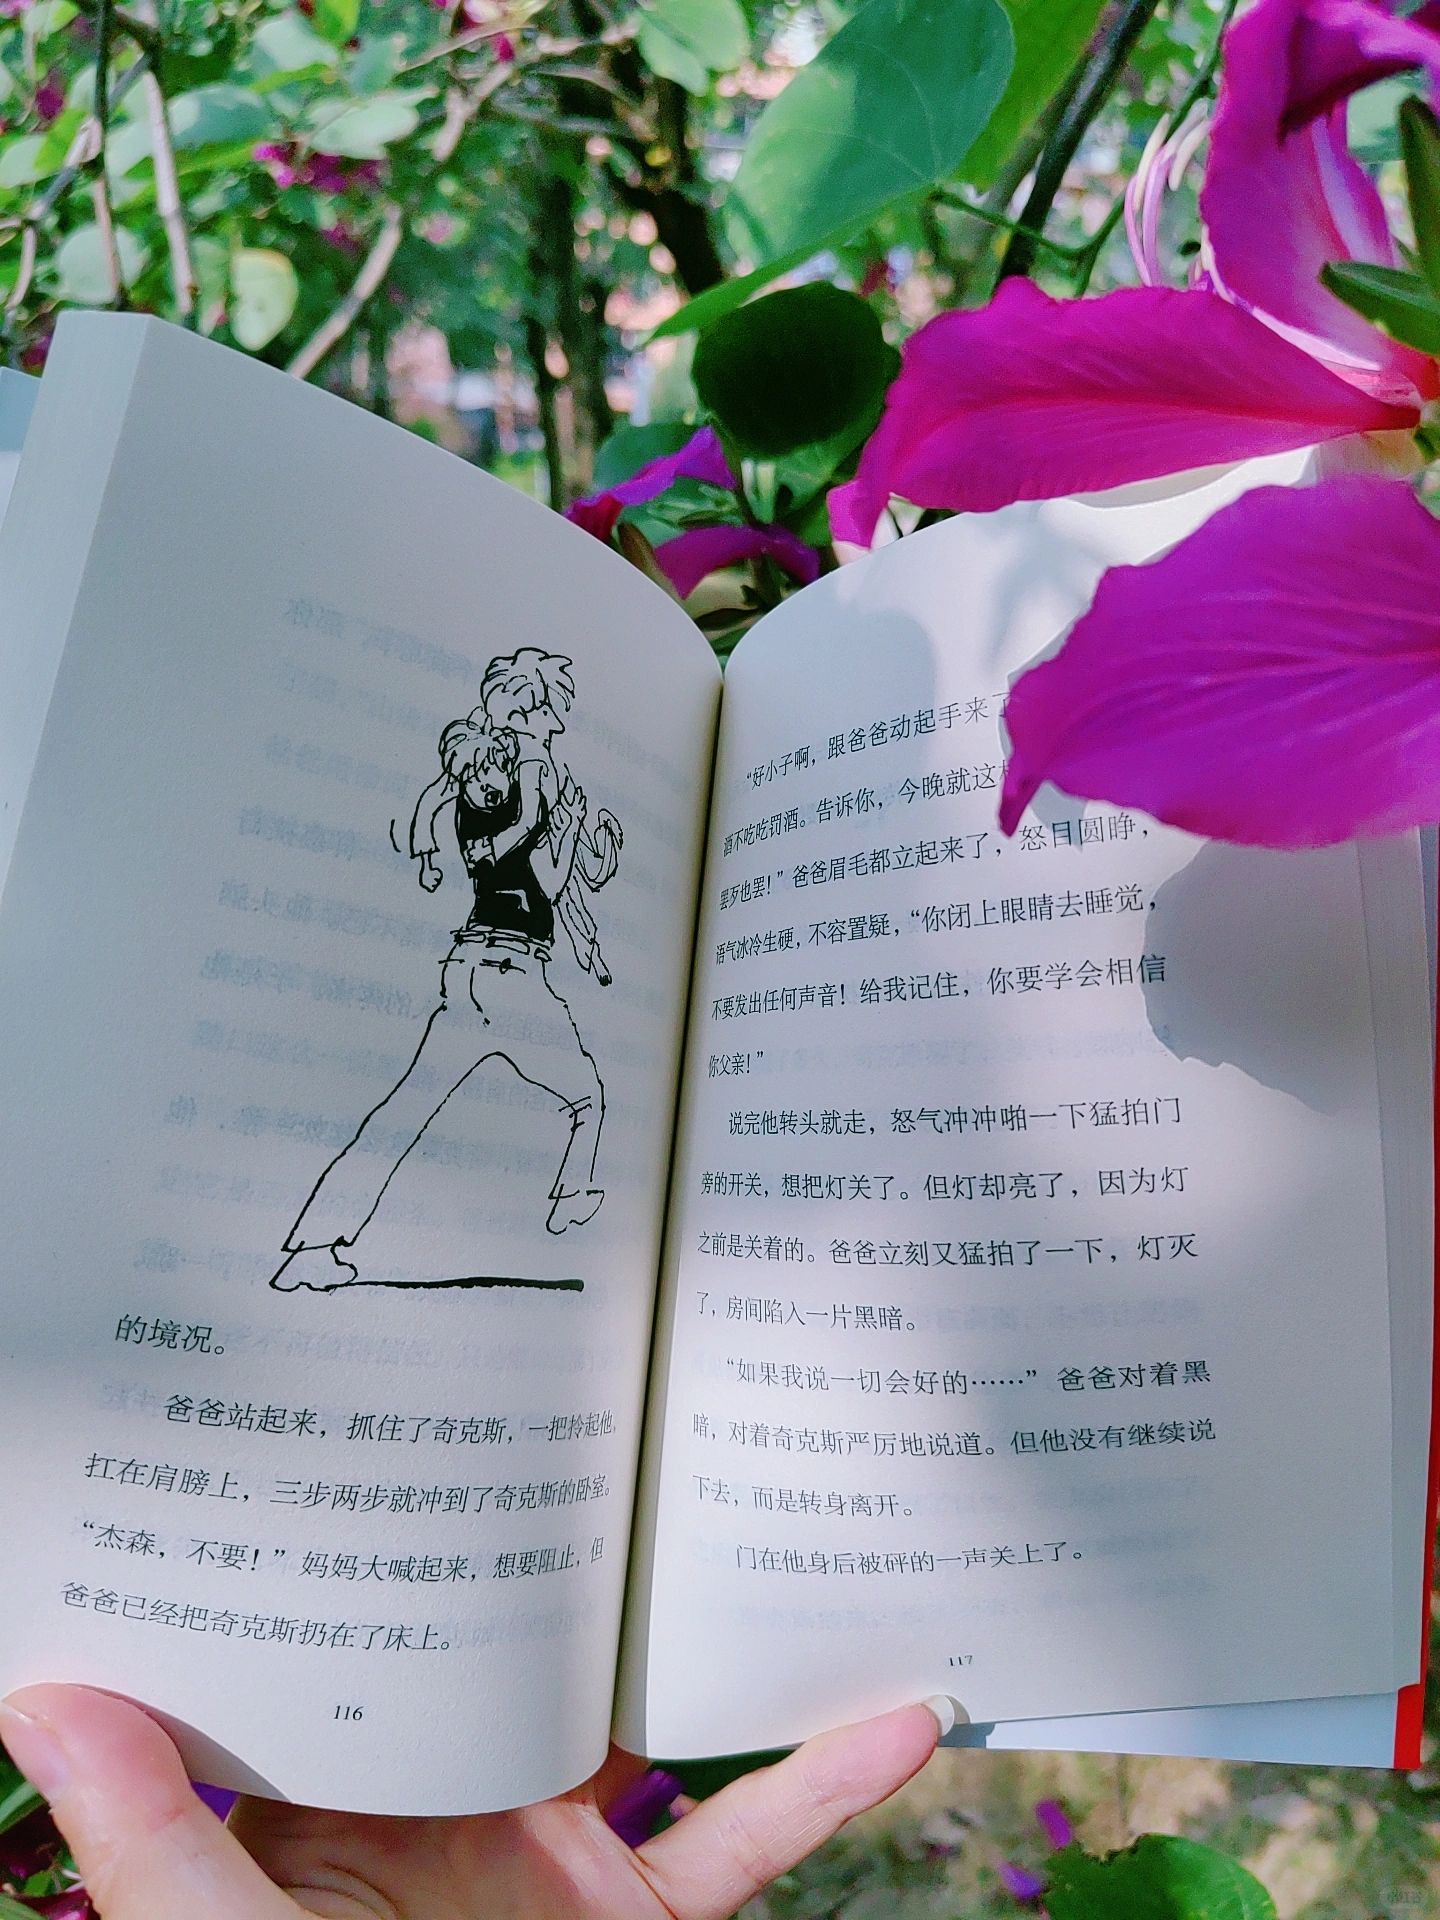 的境况。
爸爸站起来，抓住了奇克斯，一把拎起他，
扛在肩膀上，三步两步就冲到了奇克斯的卧室。
“杰森，不要！”妈妈大喊起来，想要阻止，但
爸爸已经把奇克斯扔在了床上。
116
“好小子啊，跟爸爸动起手来了
酒不吃吃罚酒。告诉你，今晚就这样
罢歹也罢！”爸爸眉毛都立起来了，怒目圆睁，
语气冰冷生硬，不容置疑，“你闭上眼睛去睡觉，
不要发出任何声音！给我记住，你要学会相信
你父亲！”
说完他转头就走，怒气冲冲啪一下猛拍门
旁的开关，想把灯关了。但灯却亮了，因为灯
之前是关着的。爸爸立刻又猛拍了一下，灯灭
了，房间陷入一片黑暗。
“如果我说一切会好的……”爸爸对着黑
暗，对着奇克斯严厉地说道。但他没有继续说
下去，而是转身离开。
门在他身后被砰的一声关上了。
117